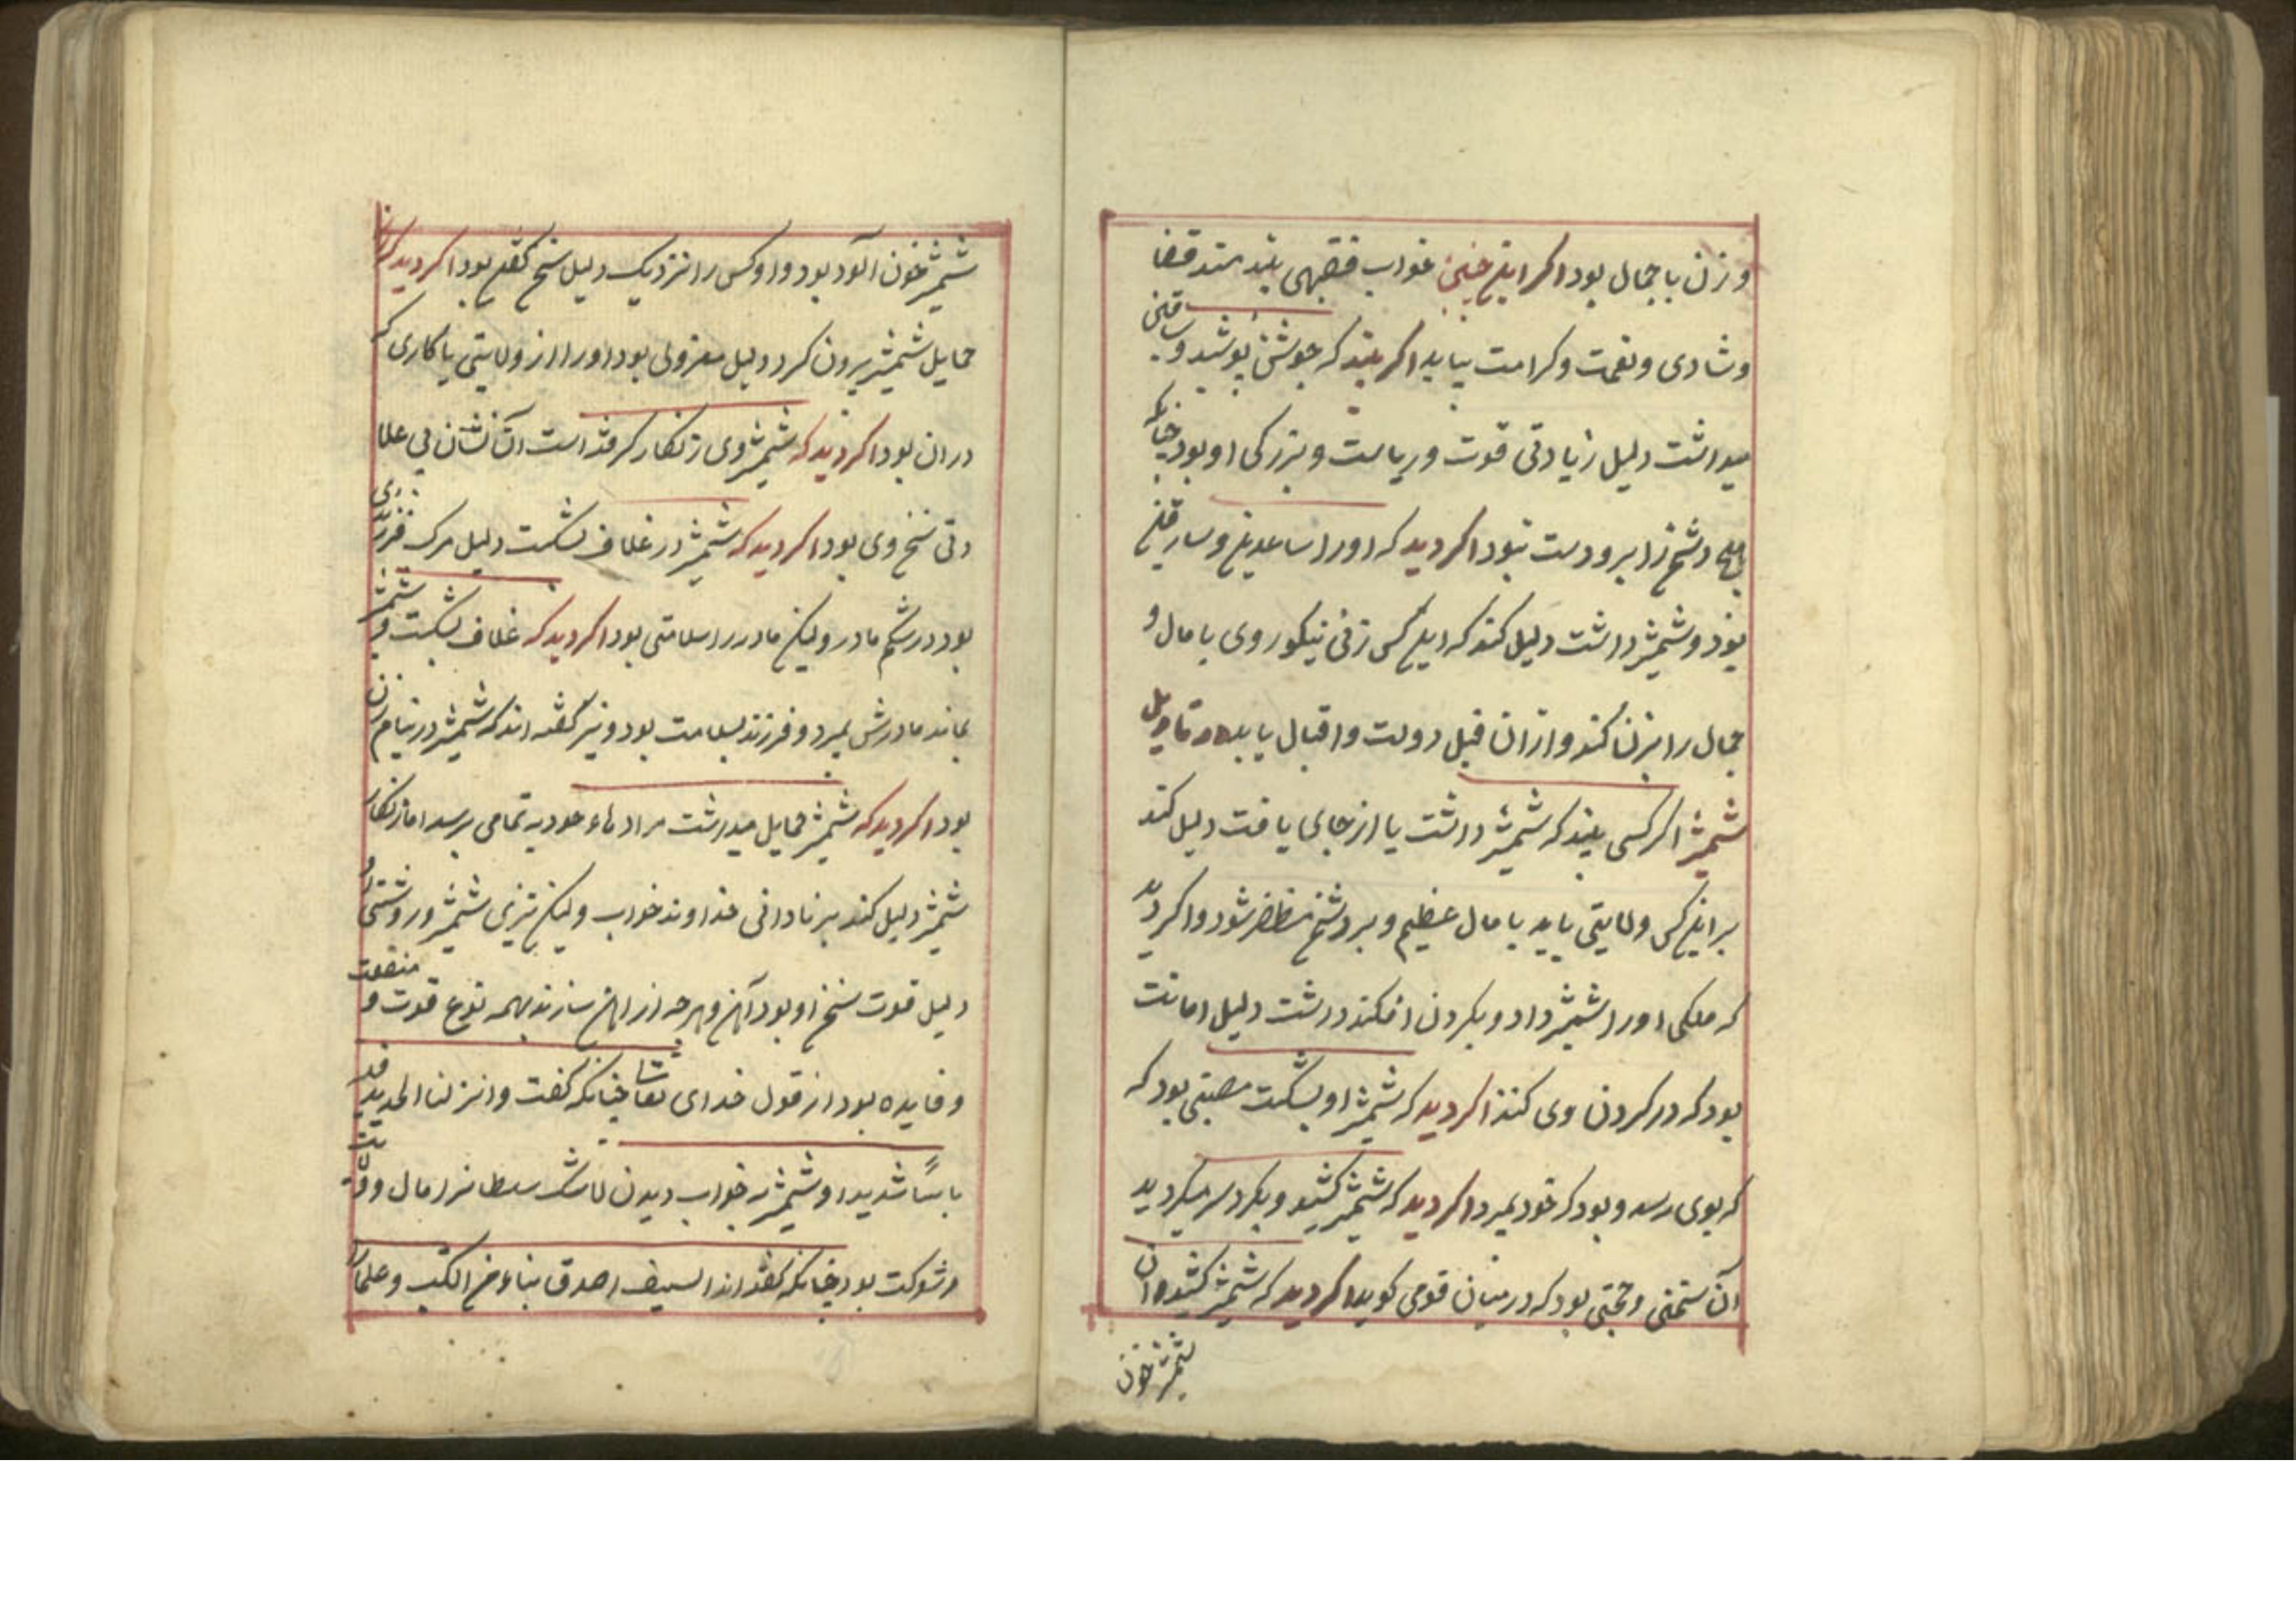 و زن با جمال بود اکر این چنین خواب فقیهی بیند قضا
و شادی و نعمت و کرامت بیابد اکر بیند که جوشن پوشید و ساقین
میداشت دلیل زیادتی قوت و ریاست و بزرکی او بود چنانکه
هیچ دشمن را برو دست نبود اکر دید که او را ساعدین و ساقین
بود و شمشیر داشت دلیل کند که این کس زنی نیکو روی با مال و
جمال را بزن کند و از آن قبل دولت و اقبال یابد تاویل
شمشیر اکر کسی بیند که شمشیر داشت یا از جای یافت دلیل کند
بر این کس ولایتی یابد با مال عظیم و بر دشمن مظفر شود و اکر دید
که ملکی او را شمشیر داد و بکردن افکند داشت دلیل امانت
بود که در کردن وی کنند اکر دید که شمشیر او بشکست مصیبتی بود که
که بوی رسد و بود که خود بمیرد اکر دید که شمشیر کشید و بکرد سر میکردید
آن سخنی و حجتی بود که در میان قومی کوید اکر دید که شمشیر کشیده آن
شمشیر خون
شمشیر خون آلود بود و او کس را نزدیک دلیل سخن کفتن بود اکر دید که آن
حمایل شمشیر بیرون کرد دلیل معزولی بود او را از ولایتی یا کاری که
در ان بود اکر دید که شمشیر وی زنکار کرفته است آن نشان بی حلا
وتی سخن وی بود اکر دید که شمشیر در غلاف بشکست دلیل مرک فرزندی
بود در شکم مادر ولیکن مادر را سلامتی بود اکر دید که غلاف بشکست و شمشیر
بماند مادرش بمیرد و فرزند بسلامت بود و نیز کفته اند که شمشیر در نیام زن
بود اکر دید که شمشیر حمایل میداشت مرادهاء خود به تمامی برسد اما زنکار
شمشیر دلیل کند بر نادانی خداوند خواب ولیکن تیزی شمشیر و روشنی او
دلیل قوت سخن او بود آهن و هرچه از اهن سازند بهمه نوع قوت و منفعت
و فایده بود از قول خدای تعالی چنانکه کفت و انزلنا الحدید فیه
باسًا شدیدا و شمشیر به خواب دیدن سلطانرا مال و ولایت
و شوکت بود چنانکه کفته اند السیف اصدق انباء من الکتب و علما را